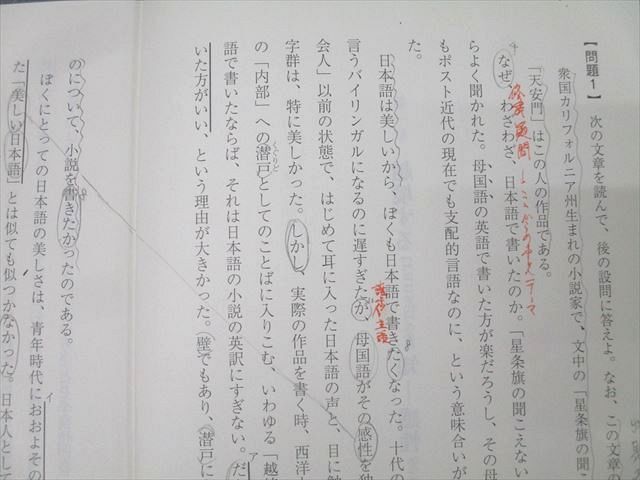 【問題1】 次の文章を読んで、後の設問に答えよ。なお、この文章の
衆国カリフォルニア州生まれの小説家で、文中の「星条旗の聞こ
「天安門」はこの人の作品である。
なぜ、わざわざ、日本語で書いたのか。「星条旗の聞こえない
らよく聞かれた。母国語の英語で書いた方が楽だろうし、その母
もポスト近代の現在でも支配的言語なのに、という意味合いが
た。
日本語は美しいから、ぼくも日本語で書きたくなった。十代の
言うバイリンガルになるのに遅すぎたが、母国語がその感性を独
会人」以前の状態で、はじめて耳に入った日本語の声と、目に触
字群は、特に美しかった。しかし、実際の作品を書く時、西洋
の「内部」への潜戸としてのことばに入りこむ、いわゆる「越境
くぐりど
語で書いたならば、それは日本語の小説の英訳にすぎない。だ
ア
いた方がいい、という理由が大きかった。壁でもあり、潜戸に
のについて、小説を書きたかったのである。
ぼくにとっての日本語の美しさは、青年時代におおよその
イ
た「美しい日本語」とは似ても似つかなかった。日本人として